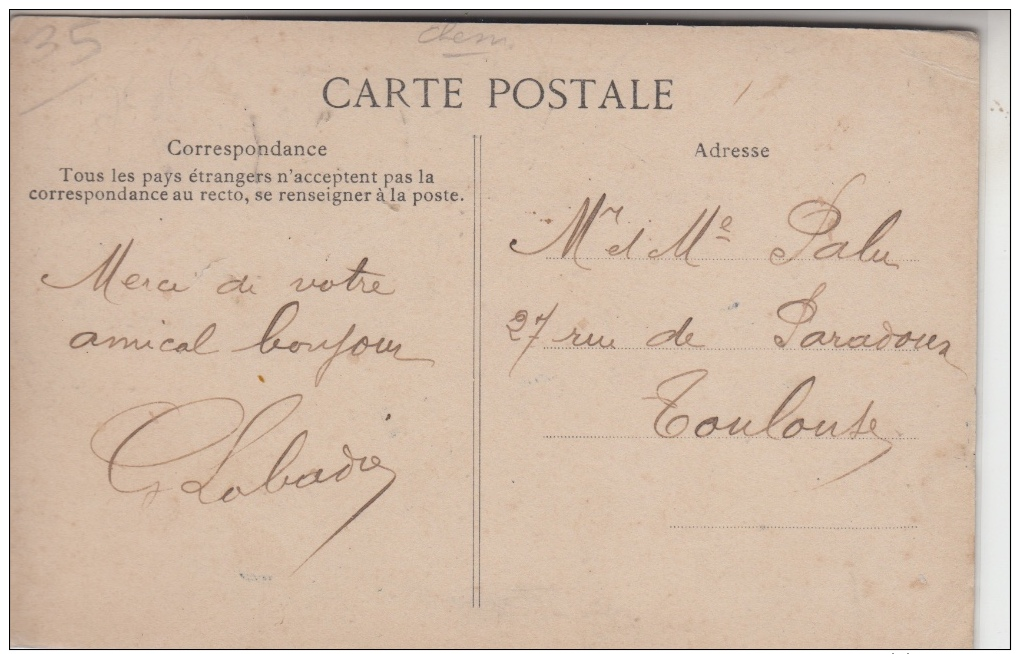 35
CARTE POSTALE
Correspondance
Tous les pays étrangers n'acceptent pas la
correspondance au recto, se renseigner à la poste.
Merci de votre
amical bonjour
G Labadie
Adresse
Mr et Me Palu
27 rue de Paradoux
Toulouse